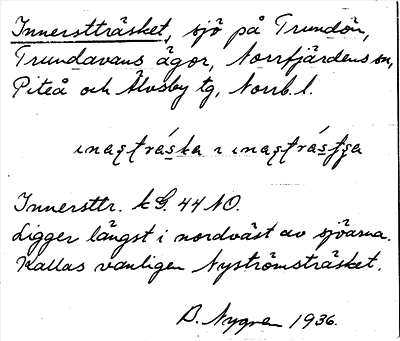 Innerstträsket, sjö på Trundön,
Trundavans ägor, Norrfjärdens sn,
Piteå och Älvsby tg, Norrb. l.
Innersttr. k G. 44 NO.
Ligger längst i nordväst av sjöarna.
Kallas vanligen Nyströmsträsket.
B. Nygren 1936.